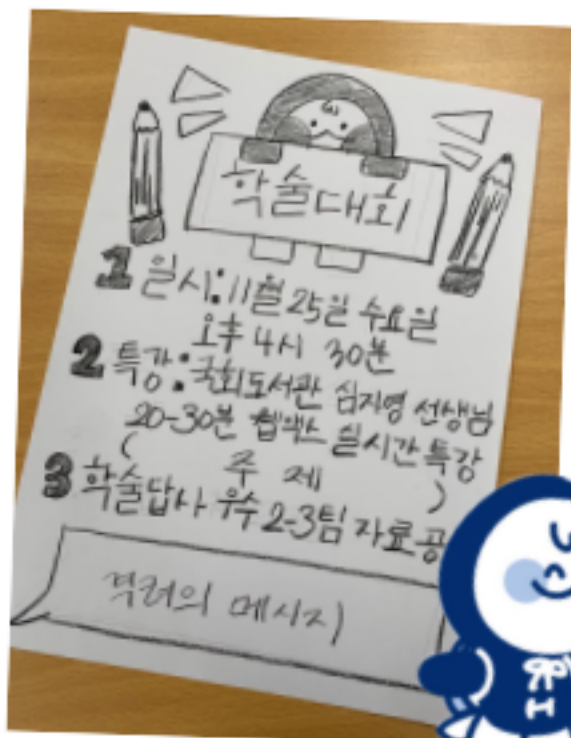 학술대회
1 일시: 11월 25일 수요일
오후 4시 30분
2 특강: 국회도서관 심지영 선생님
20-30분 웹엑스 실시간 특강
( 주 제 )
3 학술답사 우수 2-3팀 자료공
격려의 메시지